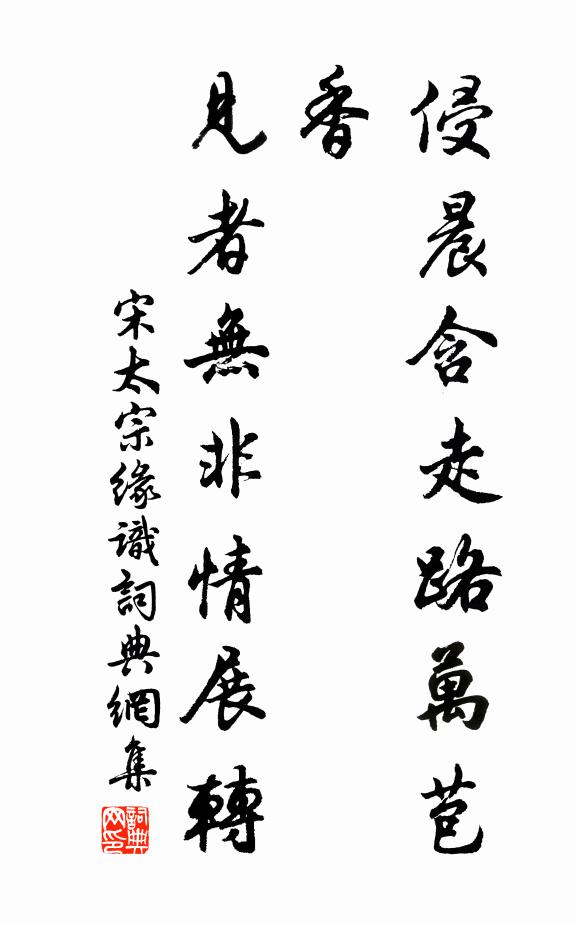 侵晨含走路萬苞
香
見者無非情展轉
宋太宗緣識詞典網集
詞典網印